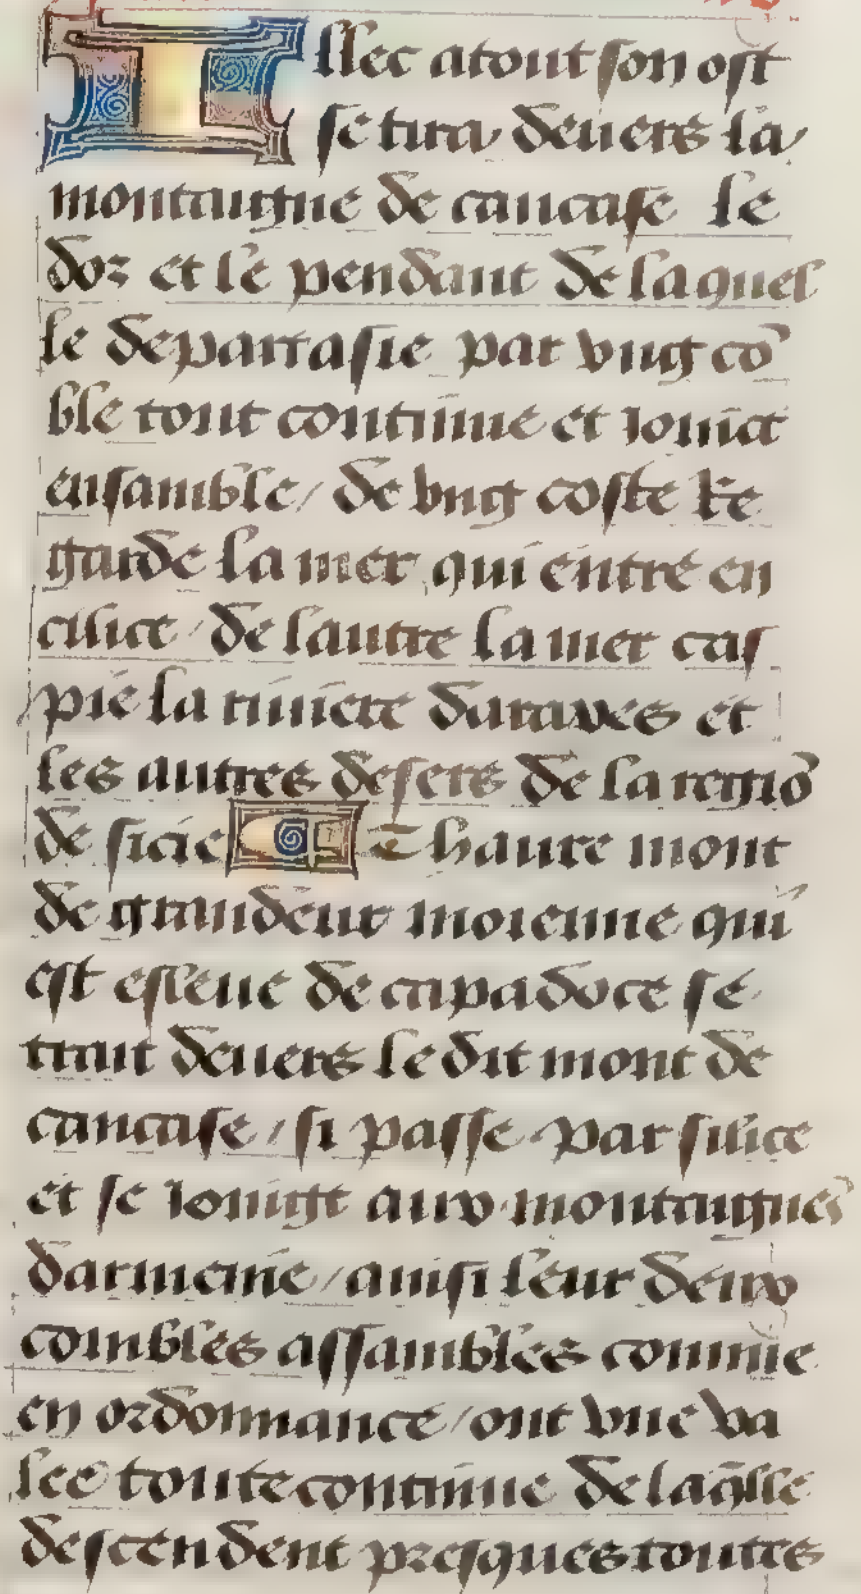 Illec atout son ost
se tira deuers la
montaigne de caucase le
doz et le pendant de laquel
le depart asie par vng cō
ble tout continue et ioinct
ensamble / de vng coste re
garde la mer qui entre en
cilice / de lautre la mer cas
pie la riuiere daraxes et
les autres desers de la regiō
de sicie Thaure mont
de grandeur moienne qui
est esleue de capadoce se
trait deuers le dit mont de
caucase / si passe par silice
et se ioinigt aux montaignes
darmenie / ainsi leur deux
combles assambles comme
en ordonnance / ont vne va
lee toute continue de laq̄lle
descendent presques toutes